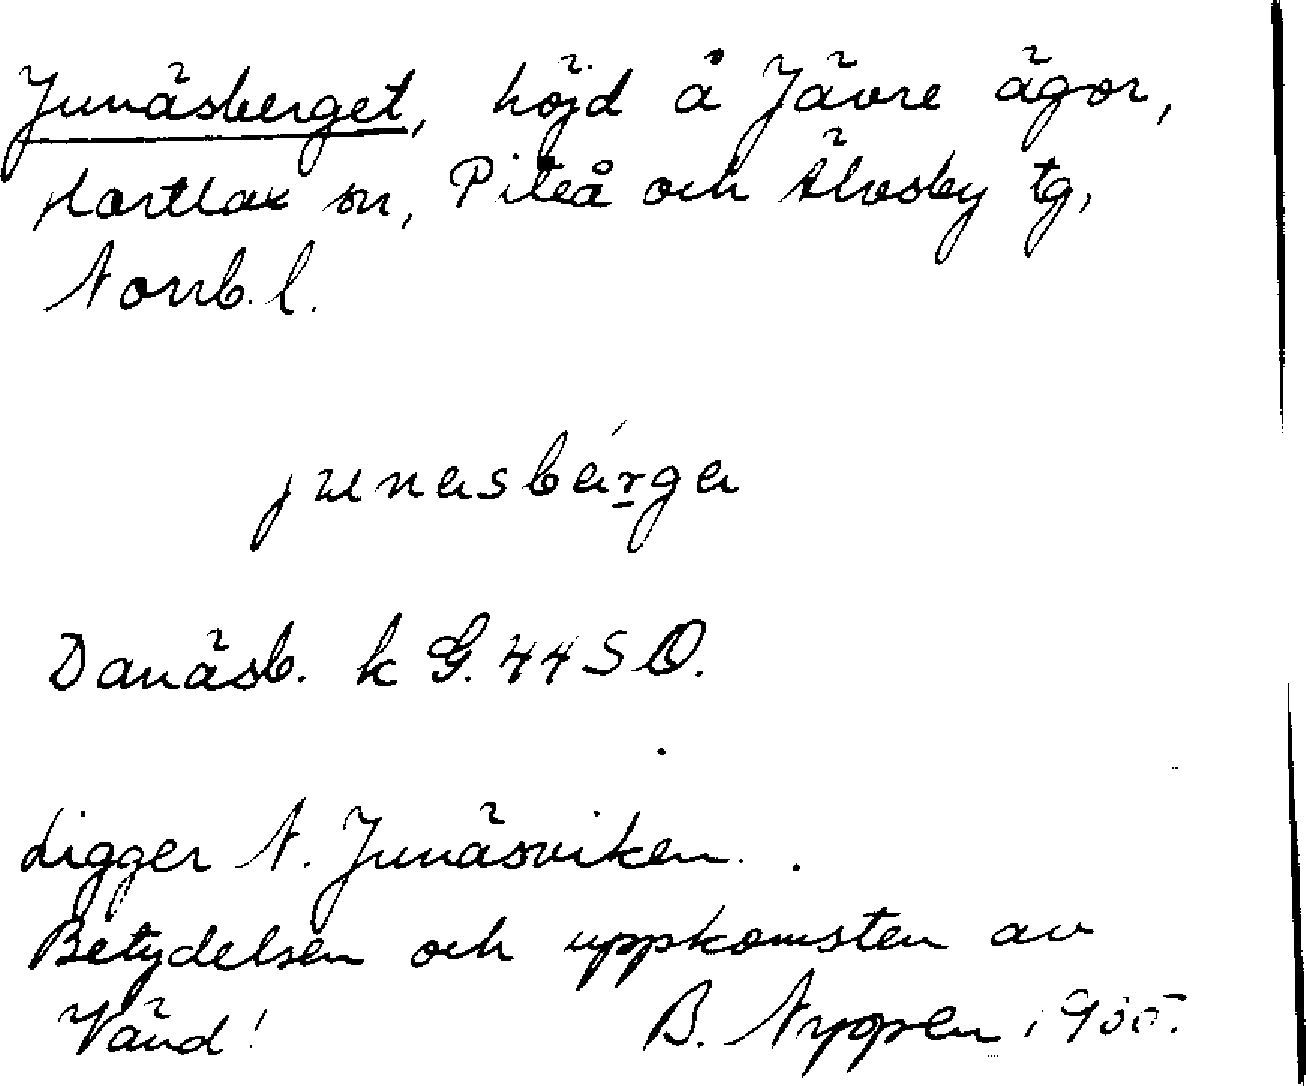 Junäsberget, höjd å Jävre ägor,
Hortlax sn, Piteå och Älvsby tg,
Norrb. l.
junasbárga
Danäsb. k G. 44 SO.
Ligger N. Junäsviken.
Betydelsen och uppkomsten av
Vänd! B. Nygren 1935.